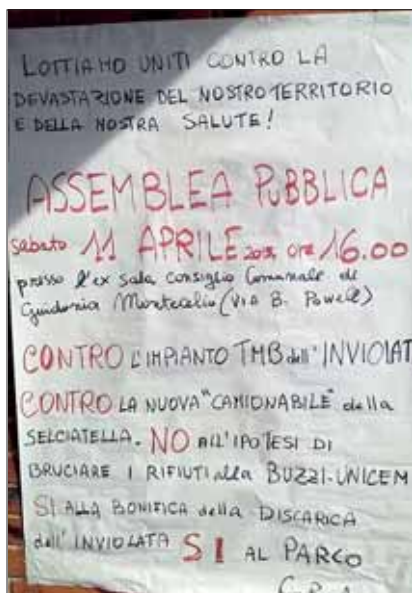 LOTTIAMO UNITI CONTRO LA
DEVASTAZIONE DEL NOSTRO TERRITORIO
E DELLA NOSTRA SALUTE!
ASSEMBLEA PUBBLICA
sabato 11 APRILE ore 16.00
presso l'ex sala consiglio Comunale di
Guidonia Montecelio (VIA B. Powell)
CONTRO L'IMPIANTO TMB dell'INVIOLAT
CONTRO LA NUOVA "CAMIONABILE" della
SELCIATELLA. NO ALL'IPOTESI DI
BRUCIARE I RIFIUTI alla BUZZI-UNICEM
SI ALLA BONIFICA della DISCARICA
dell'INVIOLATA SI AL PARCO